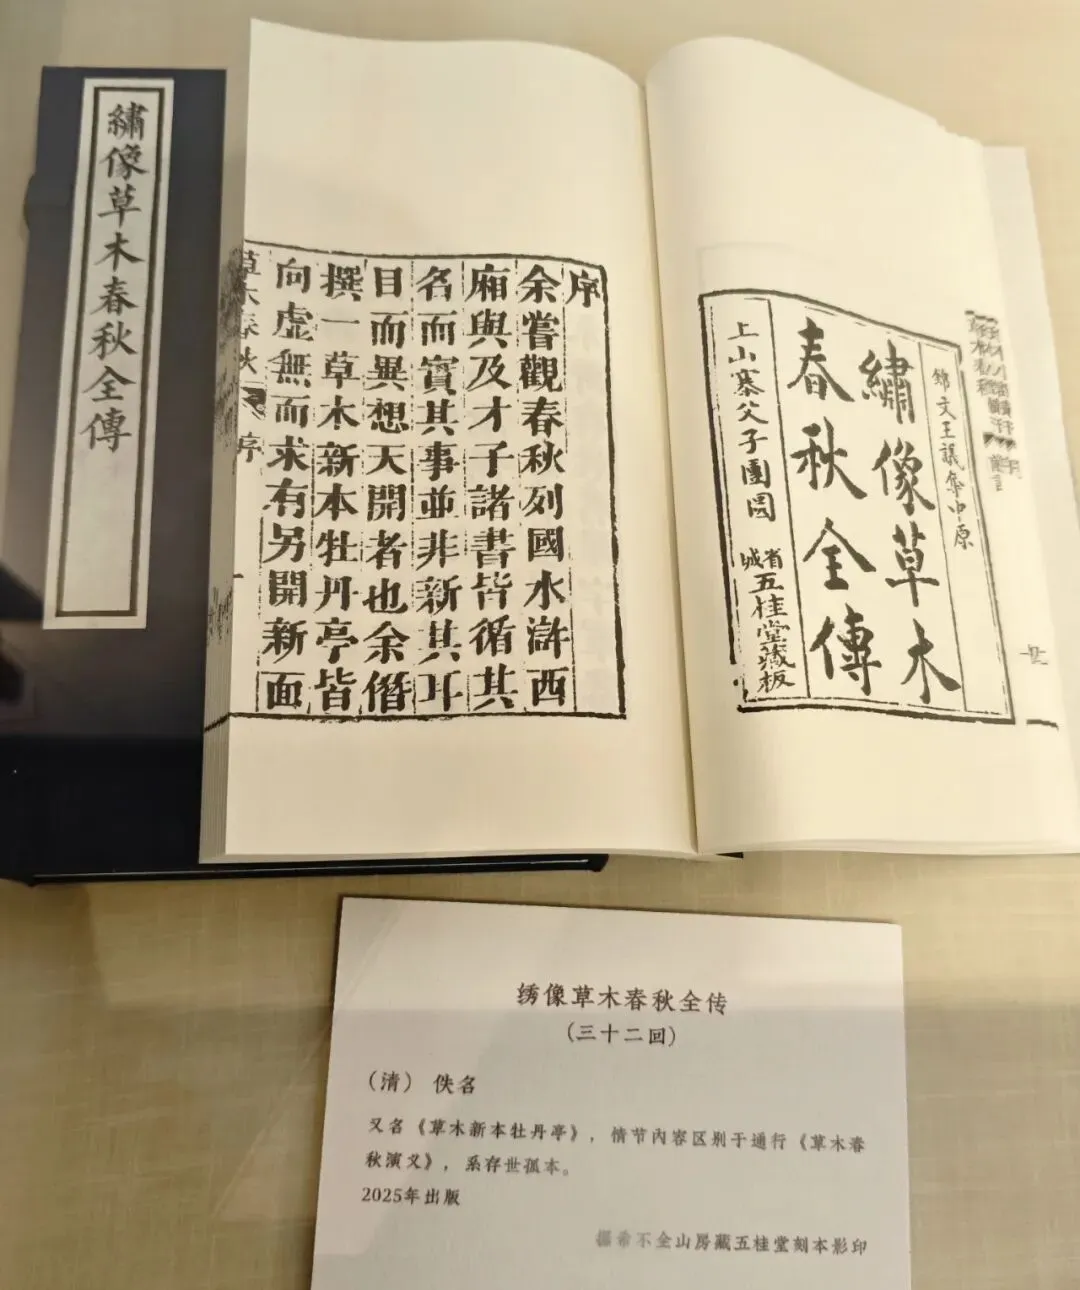 繡像草木春秋全傳
鄒文王議集中原
繡像草木
春秋全傳
上山寨父子團圓
省城五桂堂藏板
序
余嘗觀春秋列國水滸西
廂與及才子諸書皆循其
名而實其事並非新其耳
目而異想天開者也余僭
撰一草木新本牡丹亭皆
向虛無而求有另開新面
草木春秋
序
一
绣像草木春秋全传
（三十二回）
（清） 佚名
又名《草木新本牡丹亭》，情节内容区别于通行《草木春
秋演义》，系存世孤本。
2025年出版
据希不全山房藏五桂堂刻本影印